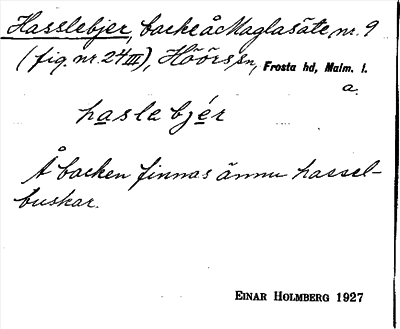 Hasslebjer, backe å Maglasäte nr. 9
(fig. nr. 24 III), Höörs sn, Frosta hd, Malm. l.
a.
haslebjér
Å backen finnas ännu hassel-
buskar.
EINAR HOLMBERG 1927